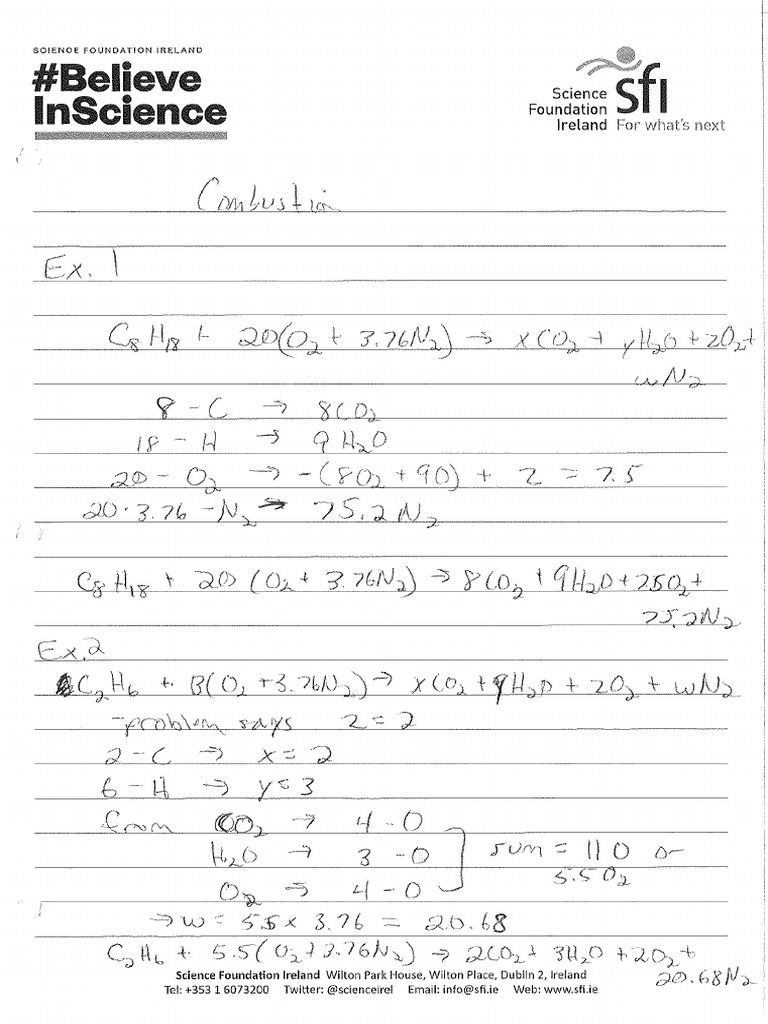 SCIENCE FOUNDATION IRELAND
#Believe
InScience
Science
Foundation
Ireland
sfi
For what's next
Combustion
Ex. 1
C₈H₁₈ + 20(O₂ + 3.76N₂) → xCO₂ + yH₂O + zO₂ +
wN₂
8 - C → 8CO₂
18 - H → 9H₂O
20 - O₂ → -(8O₂ + 9O) + z = 7.5
20·3.76 - N₂ → 75.2N₂
C₈H₁₈ + 20 (O₂ + 3.76N₂) → 8CO₂ + 9H₂O + 7.5O₂ +
75.2N₂
Ex. 2
C₂H₆ + B(O₂ + 3.76N₂) → xCO₂ + yH₂O + zO₂ + wN₂
-problem says z = 2
2 - C → x = 2
6 - H → y = 3
from CO₂ → 4 - O
H₂O → 3 - O
O₂ → 4 - O
sum = 11 O or
5.5O₂
→ w = 5.5 x 3.76 = 20.68
C₂H₆ + 5.5(O₂ + 3.76N₂) → 2CO₂ + 3H₂O + 2O₂ +
20.68N₂
Science Foundation Ireland Wilton Park House, Wilton Place, Dublin 2, Ireland
Tel: +353 1 6073200 Twitter: @scienceirel Email: info@sfi.ie Web: www.sfi.ie